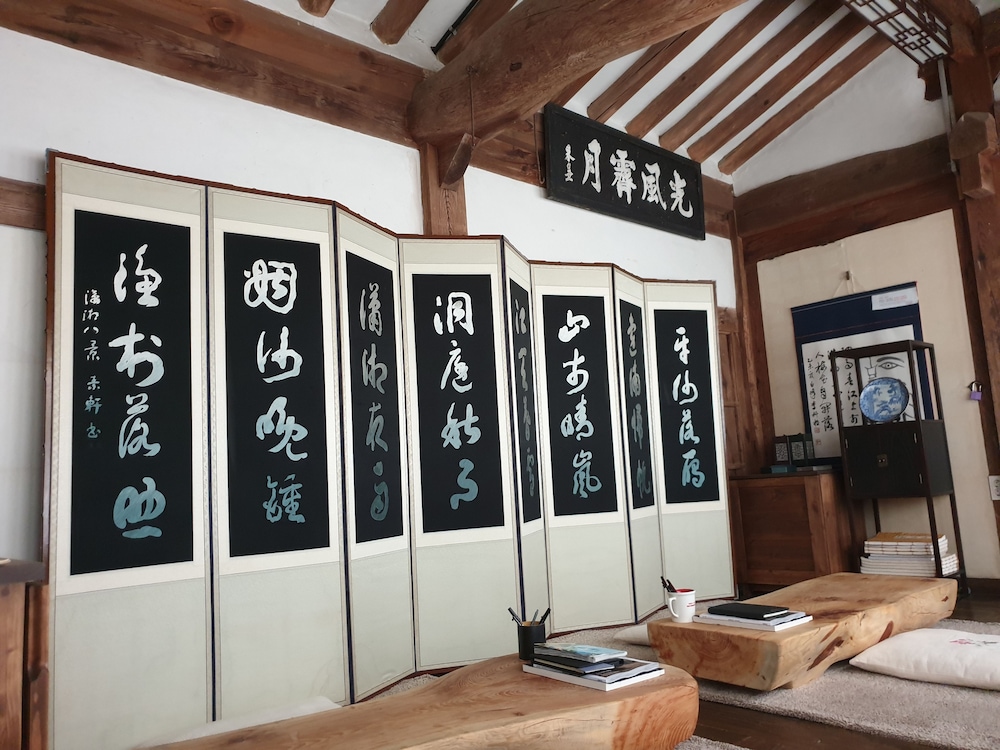 光風霽月
平沙落鴈
遠浦歸帆
山市晴嵐
江天暮雪
洞庭秋月
瀟湘夜雨
烟寺晚鍾
漁村落照
瀟湘八景